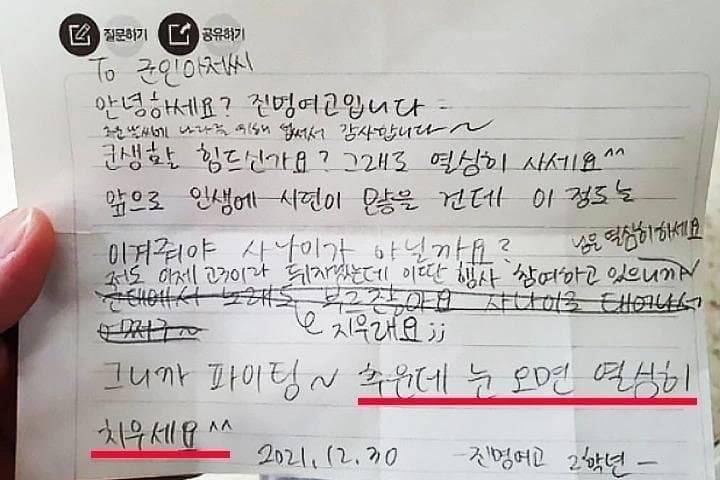 질문하기 공유하기
To 군인아저씨
안녕하세요? 진명여고입니다
추운 날씨에 나라를 위해 힘써서 감사합니다~
군생활 힘드신가요? 그래도 열심히 사세요^^
앞으로 인생에 시련이 많을 건데 이 정도는
이겨줘야 사나이가 아닐까요?
눈은 열심히하세요
저도 이제 고3이라 뒤지겠는데 이딴 행사 참여하고 있으니까~
군대에서 노래도 부르잖아요 사나이로 태어나서
지우래요;;
그니까 파이팅~ 추운데 눈 오면 열심히
치우세요^^
2021.12.30 -진명여고 2학년-